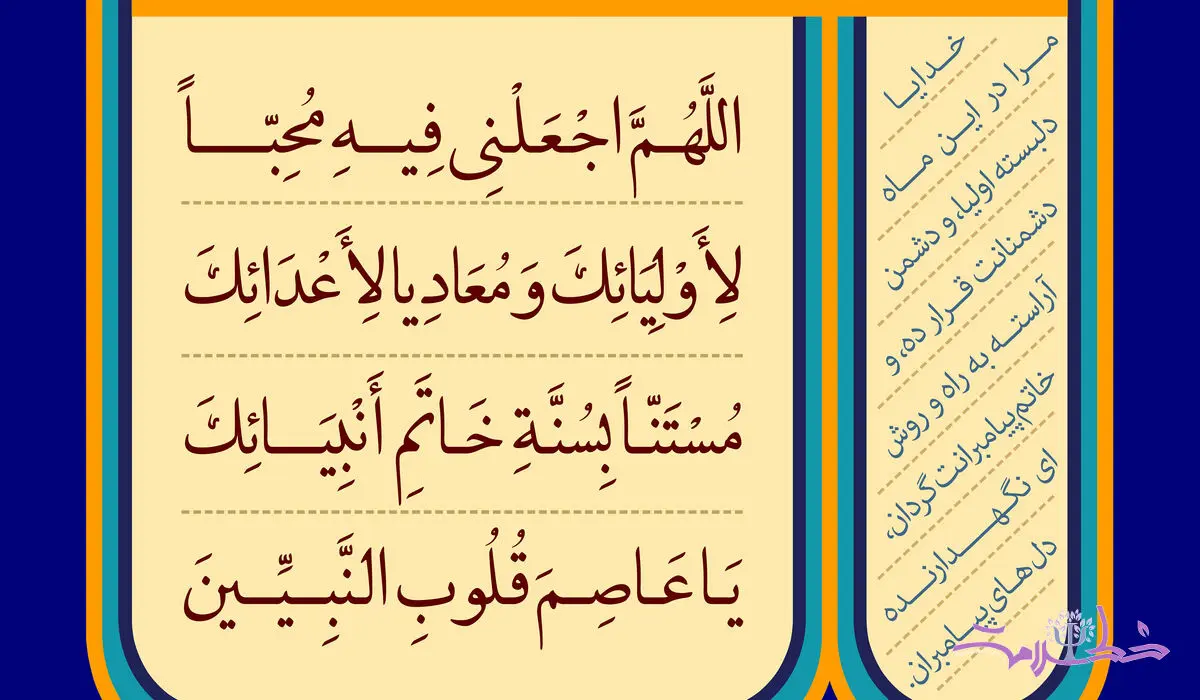 اللَّهُمَّ اجْعَلْنِی فِیهِ مُحِبّاً
لِأَوْلِیَائِكَ وَ مُعَادِیا لِأَعْدَائِكَ
مُسْتَنّاً بِسُنَّةِ خَاتَمِ أَنْبِیَائِكَ
یَا عَاصِمَ قُلُوبِ النَّبِیِّینَ
خدایا
مرا در این ماه
دلبسته اولیاء و دشمن
دشمنانت قرار ده، و
آراسته به راه و روش
خاتم پیامبرانت گردان،
ای نگهدارنده
دل‌های پیامبران.
خط سلامت